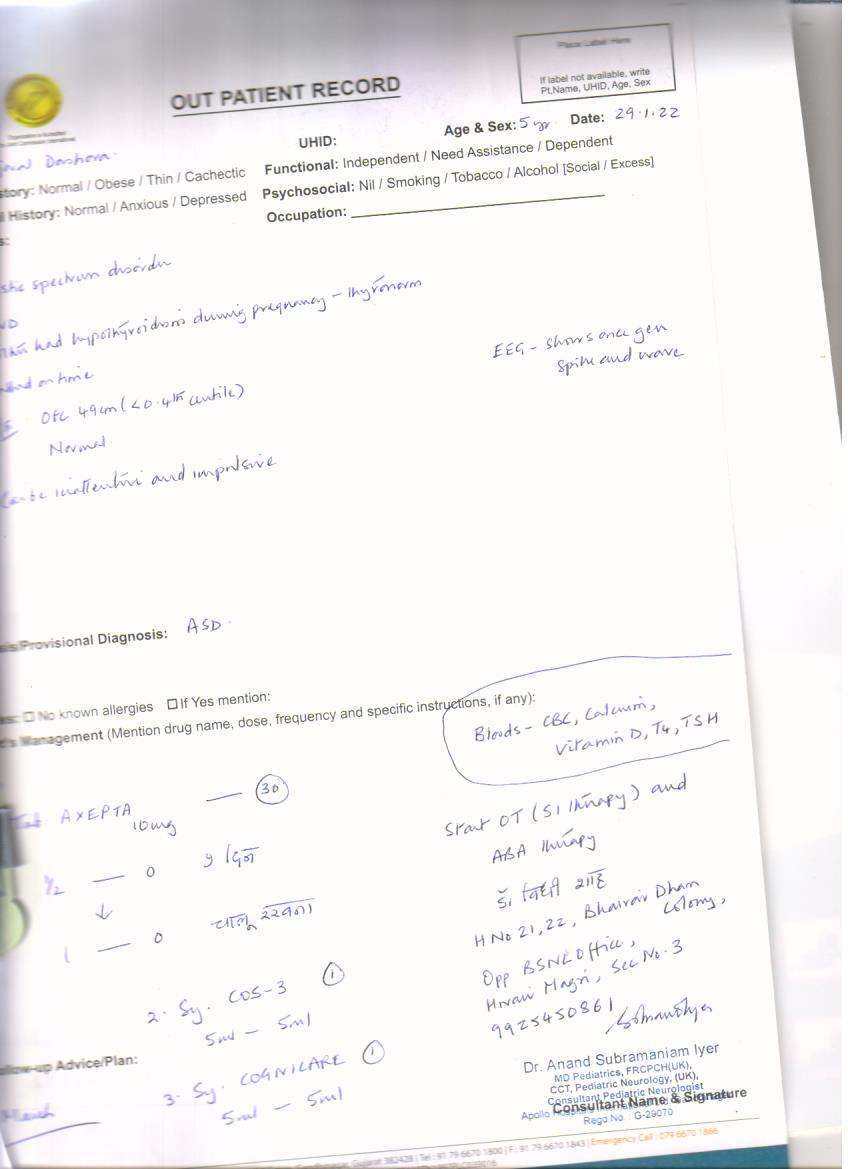 Place Label Here
If label not available, write
Pt,Name, UHID, Age, Sex
OUT PATIENT RECORD
Organization is Accredited
UHID:
Age & Sex: 5 yr Date: 29.1.22
Darshora
story: Normal / Obese / Thin / Cachectic
Functional: Independent / Need Assistance / Dependent
l History: Normal / Anxious / Depressed
Psychosocial: Nil / Smoking / Tobacco / Alcohol [Social / Excess]
Occupation:
s:
stic spectrum disorder
had hypothyroidosis during pregnancy - Thyronorm
on time
EEG - shows once gen
spike and wave
OFC 49cm (<0.4th centile)
Normal.
Can be inattentive and impulsive
sis/Provisional Diagnosis: ASD.
es: No known allergies If Yes mention:
t's Management (Mention drug name, dose, frequency and specific instructions, if any):
Bloods - CBC, Calcium,
Vitamin D, T4, TSH
Tab. AXEPTA — 30
10mg
1/2 — 0 9 દિન
↓
1 — 0
2. Sy. COS-3 1
5ml - 5ml
3. Sy. COGNICARE 1
5ml - 5ml
Start OT (SI therapy) and
ABA therapy
H No 21, 22, Bhairav Dham
Colony,
Opp BSNL Office,
Hiran Magri, Sec No. 3
9925450861
ollow-up Advice/Plan:
March
Dr. Anand Subramaniam Iyer
MD Pediatrics, FRCPCH(UK),
CCT, Pediatric Neurology, (UK),
Consultant Pediatric Neurologist
Consultant Name & Signature
Apollo Hospitals
Regd.No. G-29070
Gujarat 382428 | Tel : 91 79 6670 1800 | F : 91 79 6670 1843 | Emergency Call : 079 6670 1866